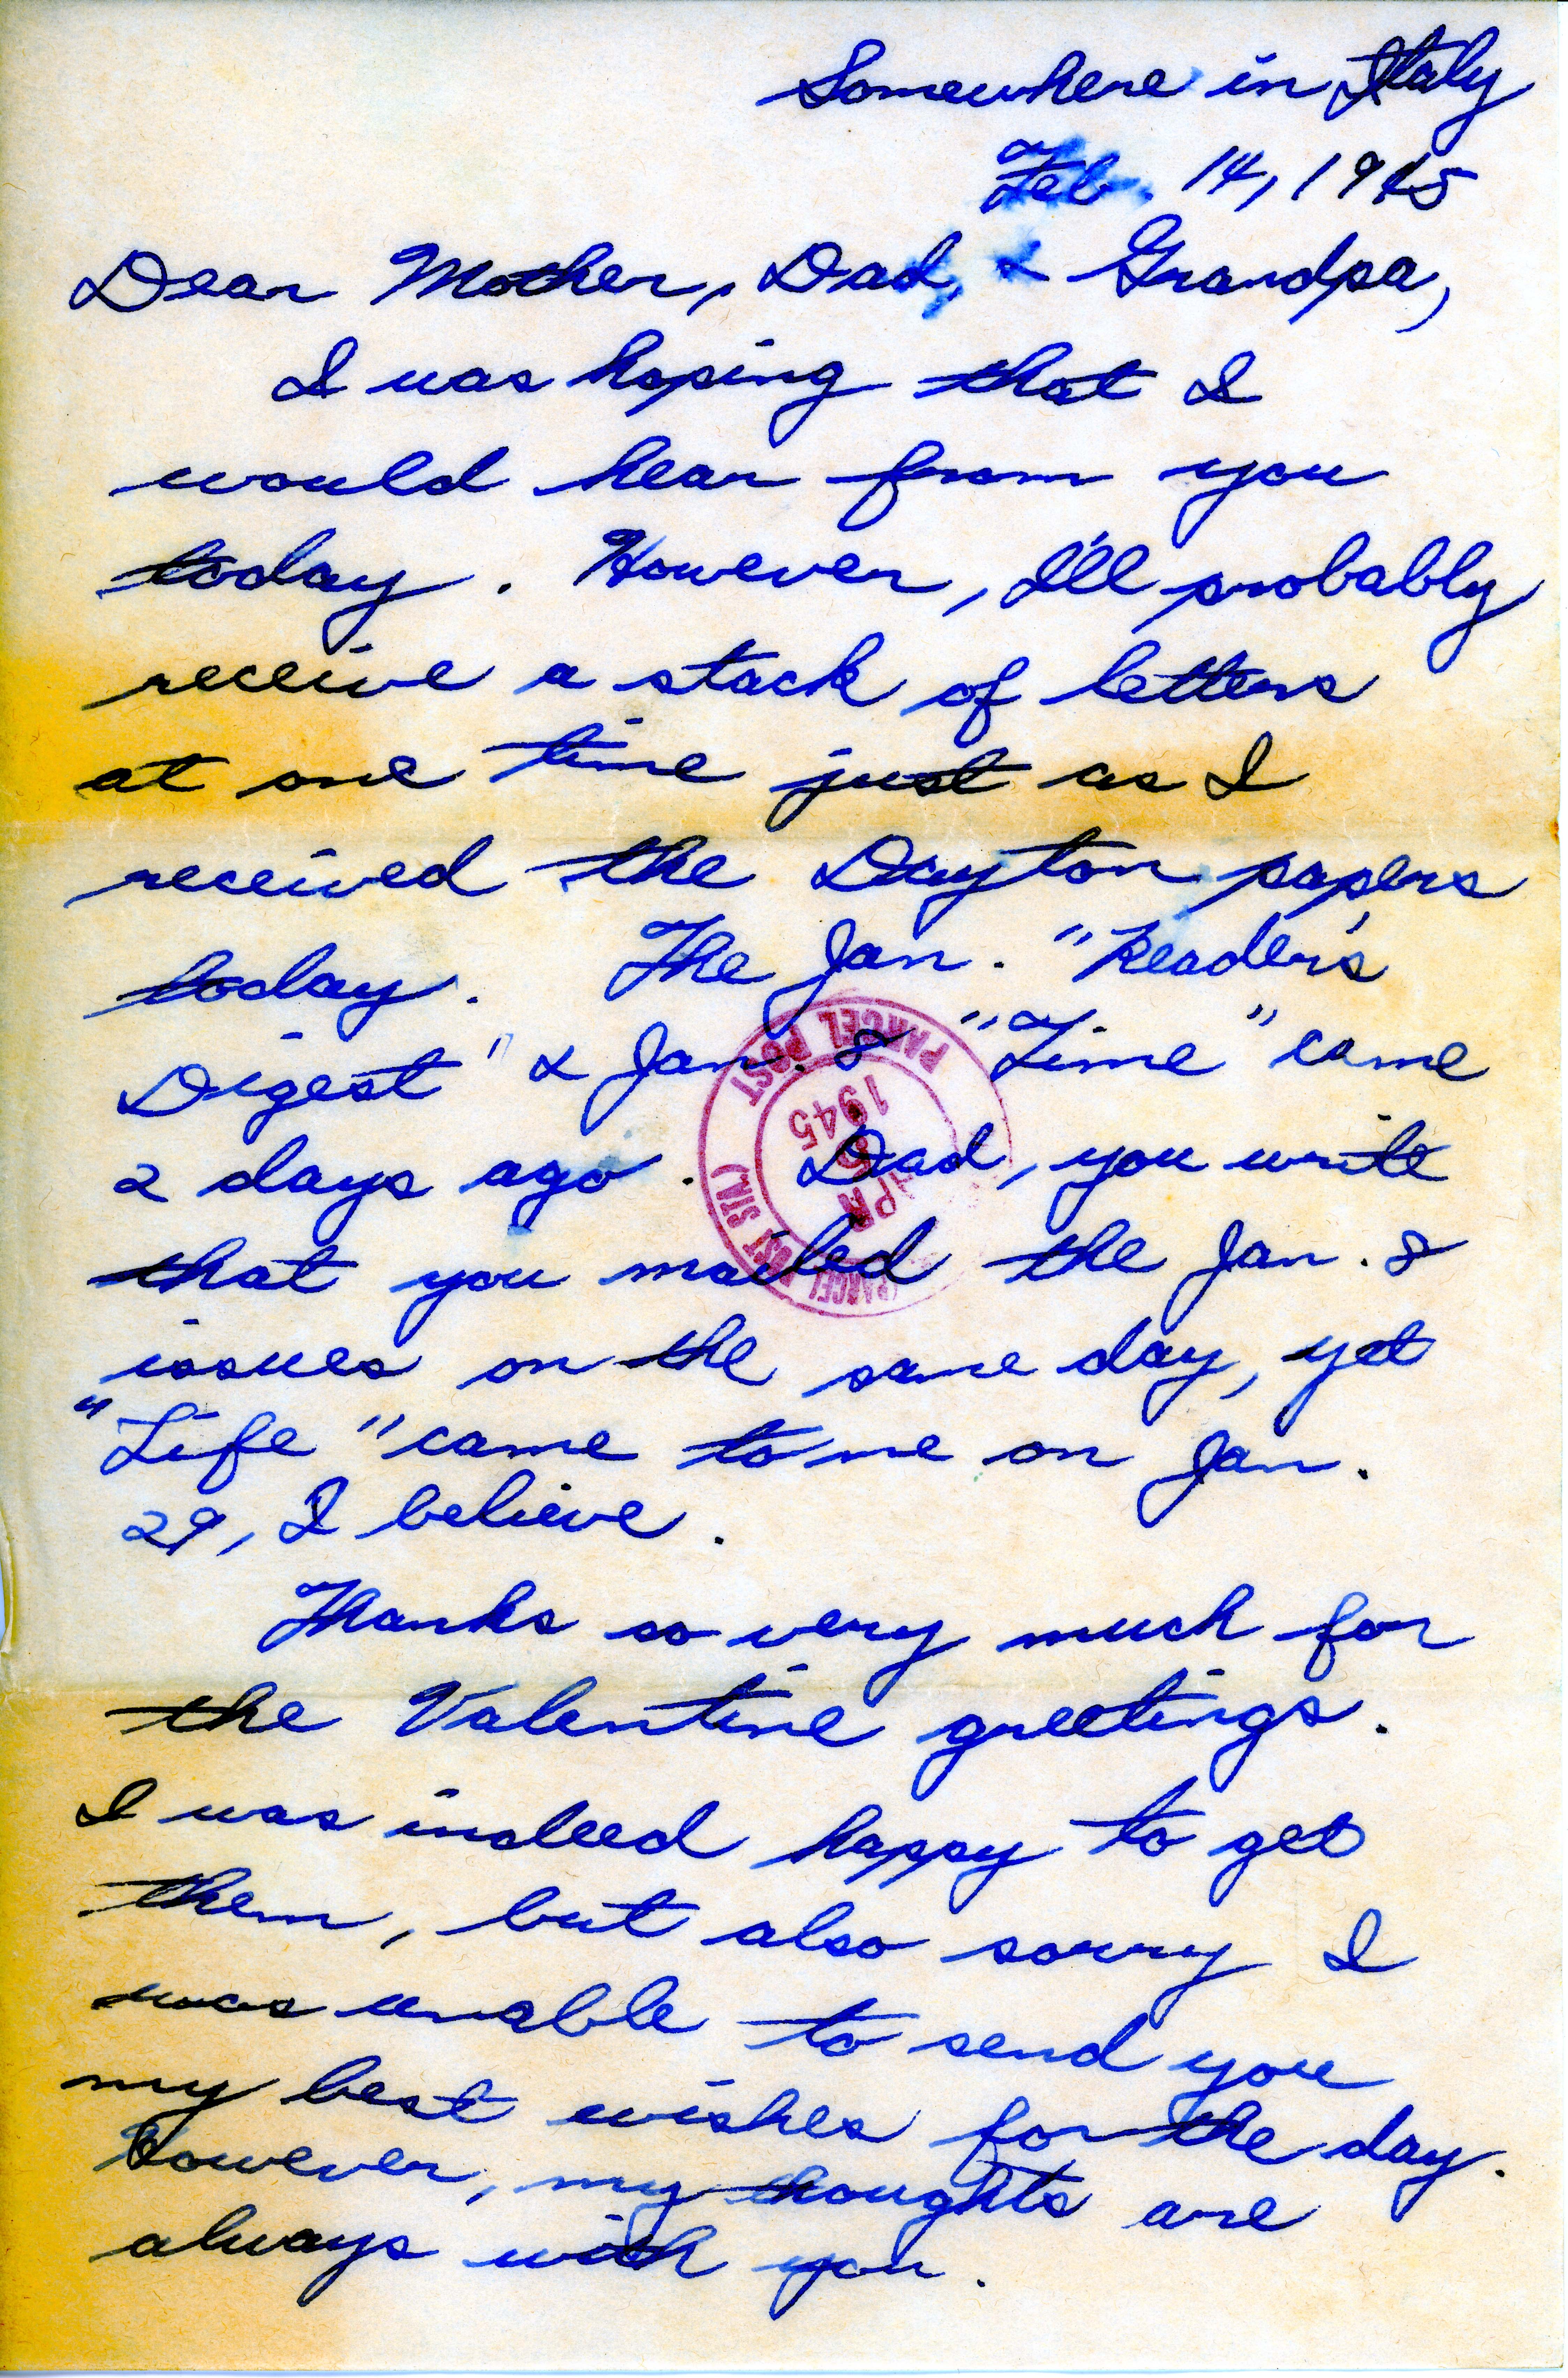 Somewhere in Italy
Feb. 14, 1945
Dear Mother, Dad, & Grandpa,
I was hoping that I
would hear from you
today. However, I'll probably
receive a stack of letters
at one time just as I
received the Dayton papers
today. The Jan. "Reader's
Digest" & Jan. 8 "Time" came
2 days ago. Dad, you write
that you mailed the Jan. 8
issues on the same day, yet
"Life" came to me on Jan.
29, I believe.
Thanks so very much for
the Valentine greetings.
I was indeed happy to get
them, but also sorry I
was unable to send you
my best wishes for the day.
However, my thoughts are
always with you.
PARCEL POST
1945
APR
(PARCEL POST STA.)